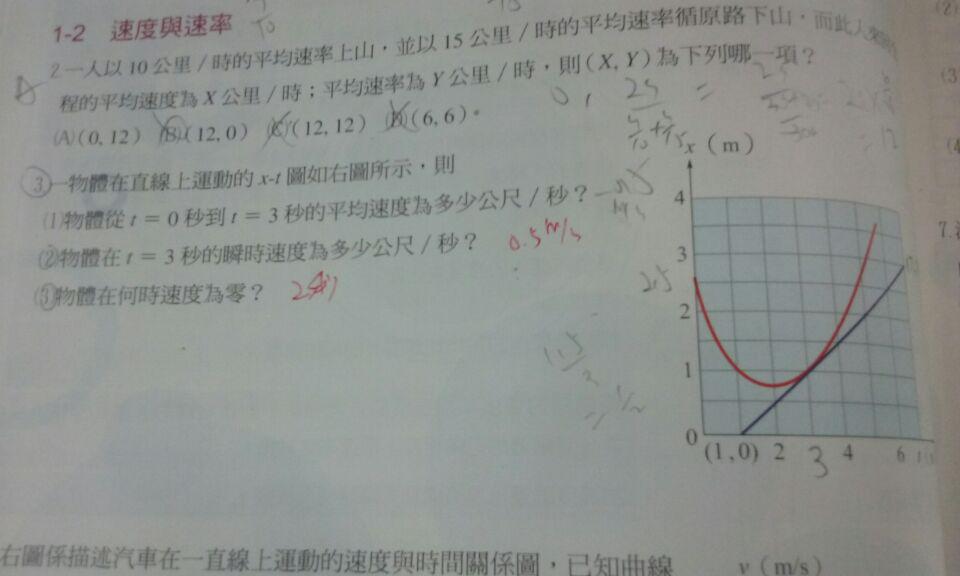 1-2 速度與速率
2一人以 10 公里/時的平均速率上山,並以 15 公里/時的平均速率循原路下山,而此人
程的平均速度為 X 公里/時;平均速率為 Y 公里/時,則(X, Y)為下列哪一項?
(A)(0, 12) (B)(12, 0) (C)(12, 12) (D)(6, 6)。
0, 25
3一物體在直線上運動的 x-t 圖如右圖所示,則
(1)物體從 t = 0 秒到 t = 3 秒的平均速度為多少公尺/秒?
(2)物體在 t = 3 秒的瞬時速度為多少公尺/秒? 0.5 m/s
(3)物體在何時速度為零?
x (m)
4
3
2.5
2
1
0 (1,0) 2 3 4 6
右圖係描述汽車在一直線上運動的速度與時間關係圖,已知曲線
v (m/s)
(2)
(3)
(4)
7.